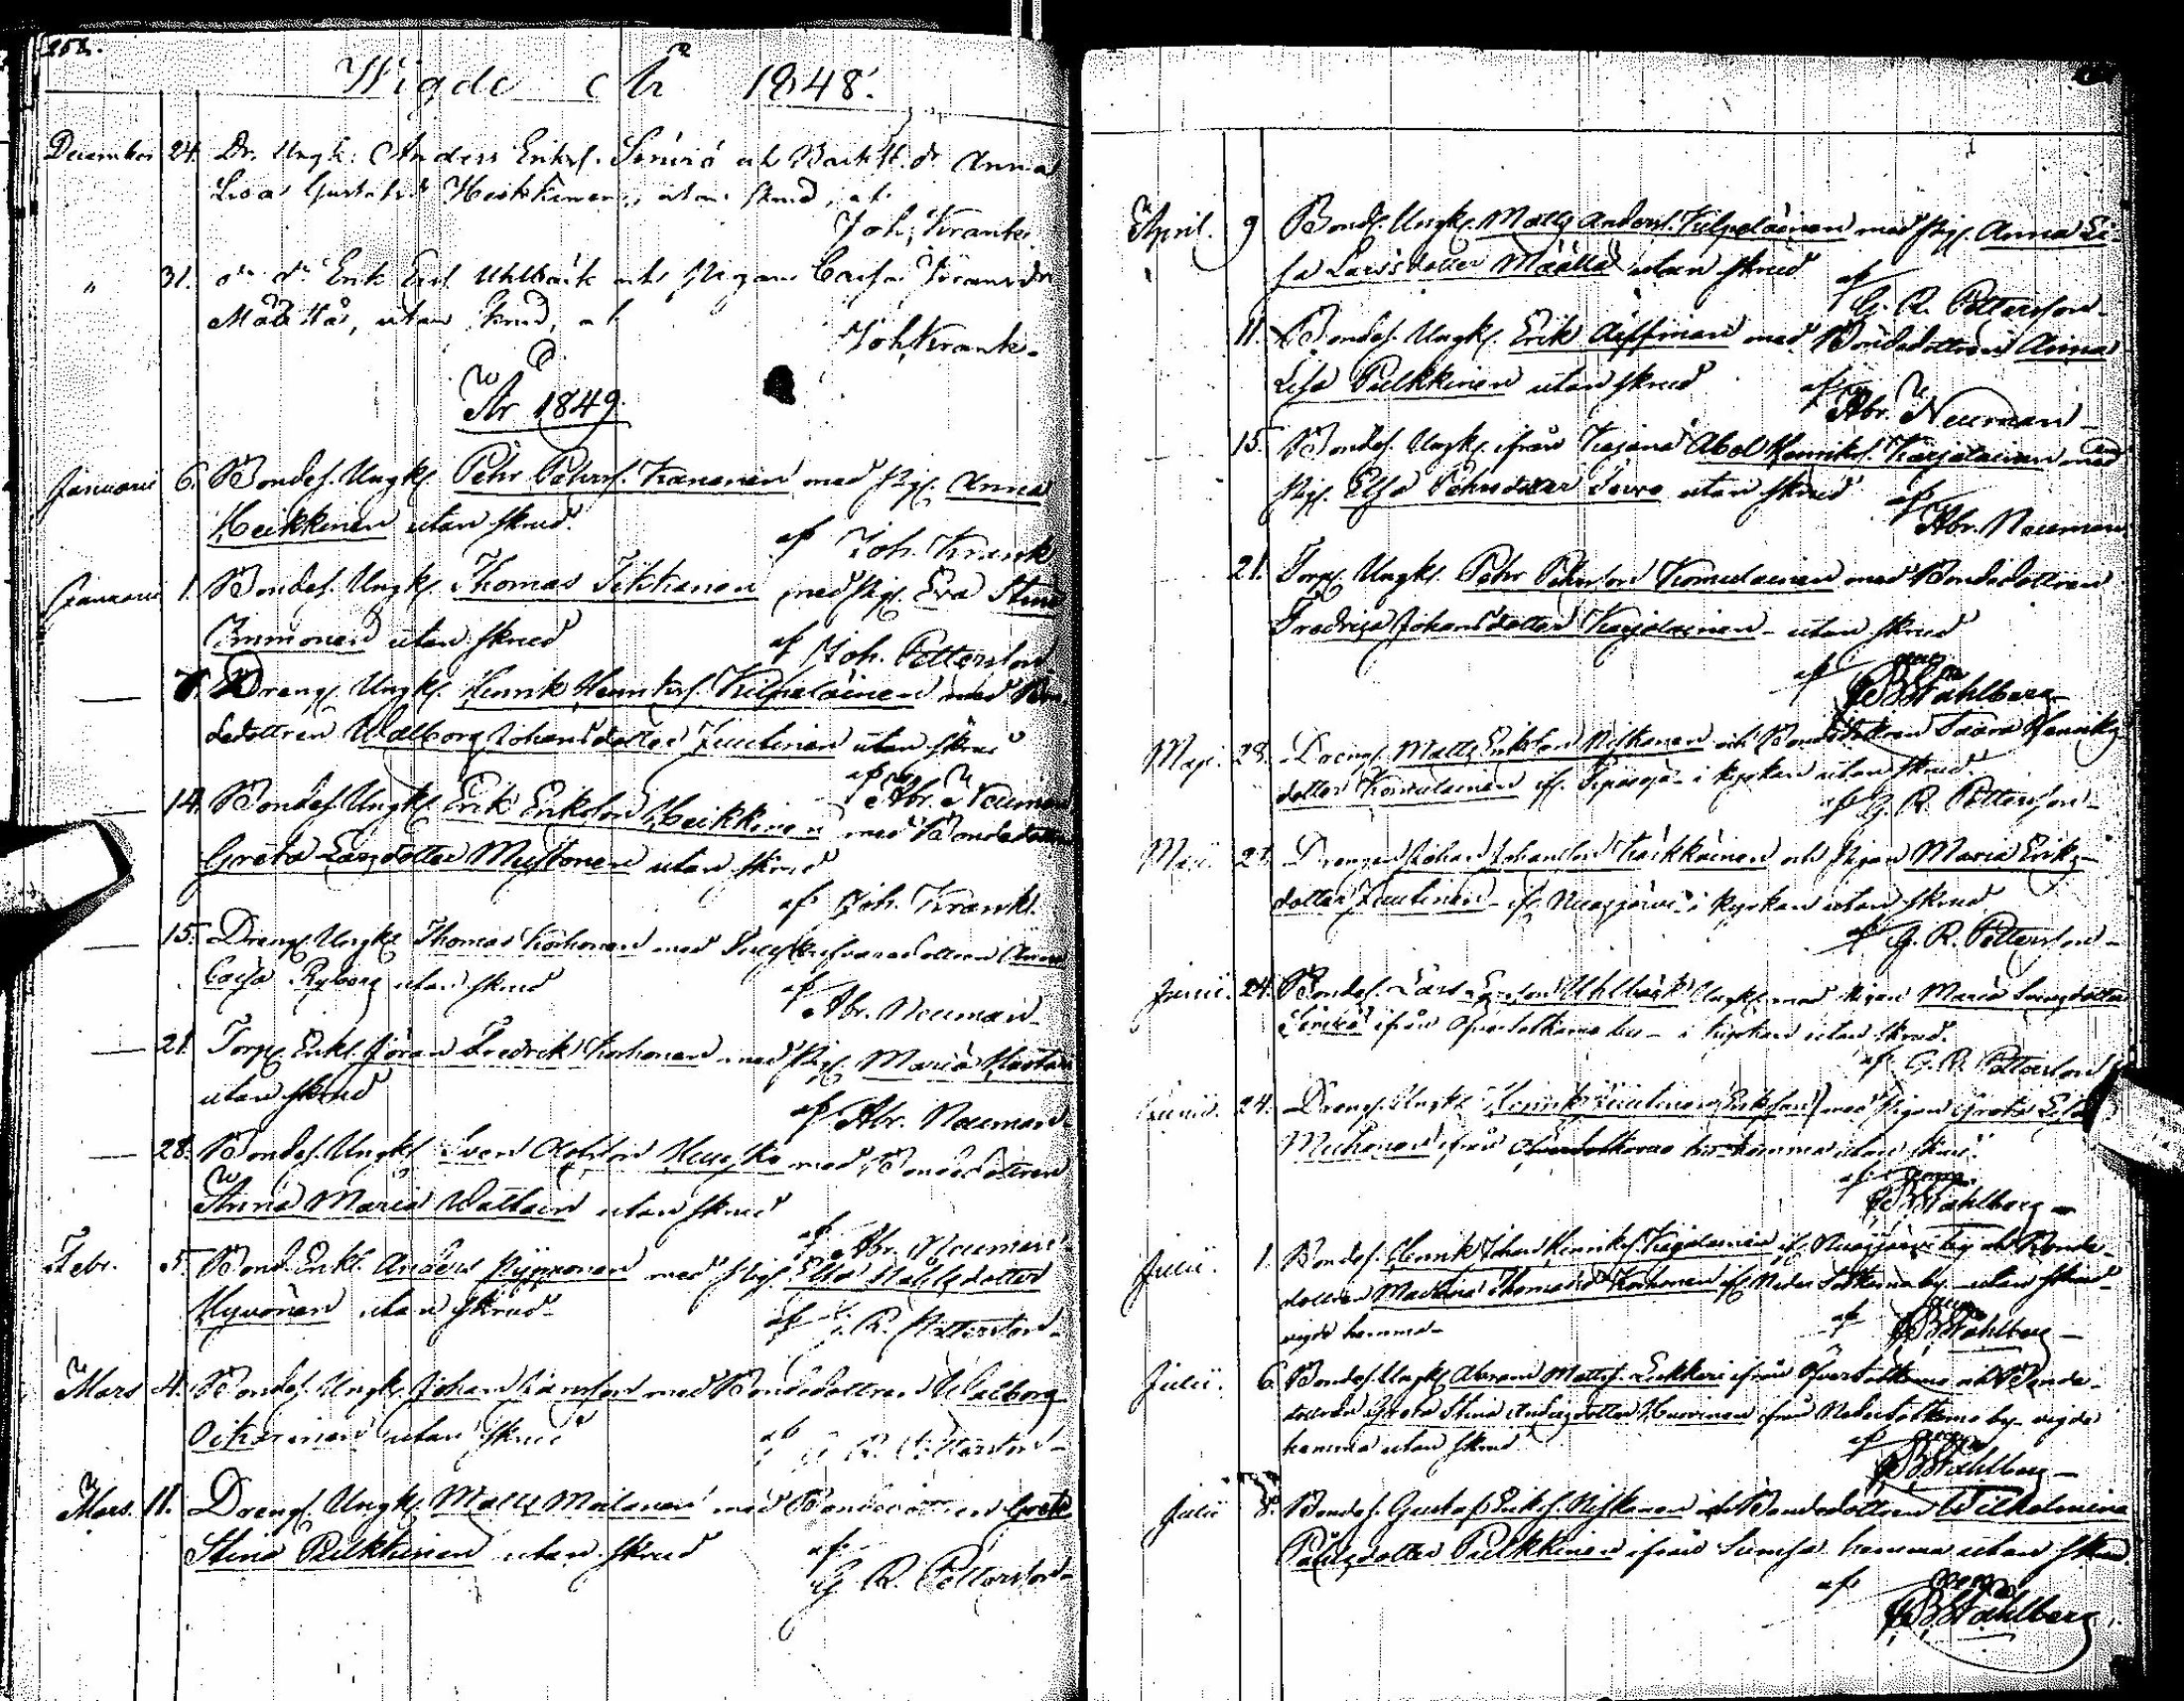 252.
Wigde År 1848.
December 24. Dr. Ungk. Anders Eriks. Servió och Backst. dr Anna
Lisa Gustafsdr Heikkinen, utan skrud, af
Joh. Krank.
" 31. dn dn Erik Ers. Uhlbäck och Pigan Caisa Göransdr
Määttä, utan skrud, af
Joh. Krank.
År 1849.
Januarii 6. Bondes. Ungk. Pehr Pehrs. Kananen med Pig. Anna
Heikkinen utan skrud.
af Joh. Krank
Januarii 1. Bondes. Ungk. Thomas Tikkanen med Pig. Eva Stina
Immonen utan skrud
af Joh. Petterson
— 7. Dreng. Ungk. Henrik Henriks. Kilpeläinen med Bon
dedottren Walborg Johansdotter Juutinen utan skrud
af Abr. Neuman
14. Bondes. Ungk. Erik Erikson Heikkinen med Bondedottren
Greta Larsdotter Mustonen utan skrud
af Joh. Krank.
— 15. Dreng. Ungk. Thomas Korhonen med dottren Anna
Caisa Ryberg utan skrud
af Abr. Neuman
— 21. Torp. Enkl. Göran Fredrik Korhonen med Pig. Maria
utan skrud
af Abr. Neuman
— 28. Bondes. Ungk. Sven med Bondedottren
Anna Maria utan skrud
af Abr. Neuman
Febr. 5. Bond. Enkl. Anders Pyykönen med Pig. Elsa Mattsdotter
Hyvönen utan skrud
af G. R. Petterson
Mars 4. Bondes. Ungk. Johan Jansson med Bondedottren Walborg
Oikarinen utan skrud
af G. R. Petterson
Mars. 11. Dreng. Ungk. Matts Moilanen med Bondedottren Greta
Stina Pulkkinen utan skrud
af
G. R. Petterson
April. 9 Bondes. Ungk. Matts Anders. Kilpeläinen med Pig. Anna Li-
sa Larsdotter Määttä utan skrud
af
G. R. Petterson
11. Bondes. Ungk. Erik med Bondedottren Anna
Lisa Pulkkinen utan skrud
af
Abr. Neuman
15. Bondes. Ungk. ifrån Kajana Abel Henriks. Karjalainen med
Pig. Elsa Pehrsdotter utan skrud
af
Abr. Neuman
21. Torp. Ungk. Pehr Pehrson Komulainen med Bondedottren
Fredrica Johansdotter Karjalainen utan skrud
af
Ståhlberg
Maji. 28. Dreng. Matts Erikson Niskanen och Bondedottren Saara Henriks-
dotter Komulainen if. i kyrkan utan skrud.
af G. R. Petterson
Maji. Drengen Johan Johansson och Pigan Maria Eriks-
dotter Juutinen if. Nuasjärvi i kyrkan utan skrud
af G. R. Petterson
Junii. 24. Bondes. Lars Uhlbäck Ungk. med Pigan Maria Svensdotter
ifrån Öfversotkamo by i kyrkan utan skrud.
af G. R. Petterson
Junii. 24. Dreng. Ungk. Henrik Juutinen (Eriksson) med Pigan Greta Lisa
Muhonen ifrån Öfversotkamo by hemma utan skrud
af
Ståhlberg
Julii. 1. Bondes. Henrik Johan Henriks. Karjalainen if. Nuasjärvi by och Bonde-
dottren Thomasdr Korhonen if. Neder Sotkamo by utan skrud
vigde hemma
af Ståhlberg
Julii. 6. Bondes. Ungk. Abram Matts. ifrån Öfversotkamo och Bonde-
dottren Greta Stina Andersdotter Huovinen ifrån Nedersotkamo by vigde
hemma utan skrud.
af
Ståhlberg
Julii 8. Bondes. Gustaf Eriks. Niskanen och Bondedottren Wilhelmina
Påhlsdotter Pulkkinen ifrån hemma utan skrud.
af
Ståhlberg